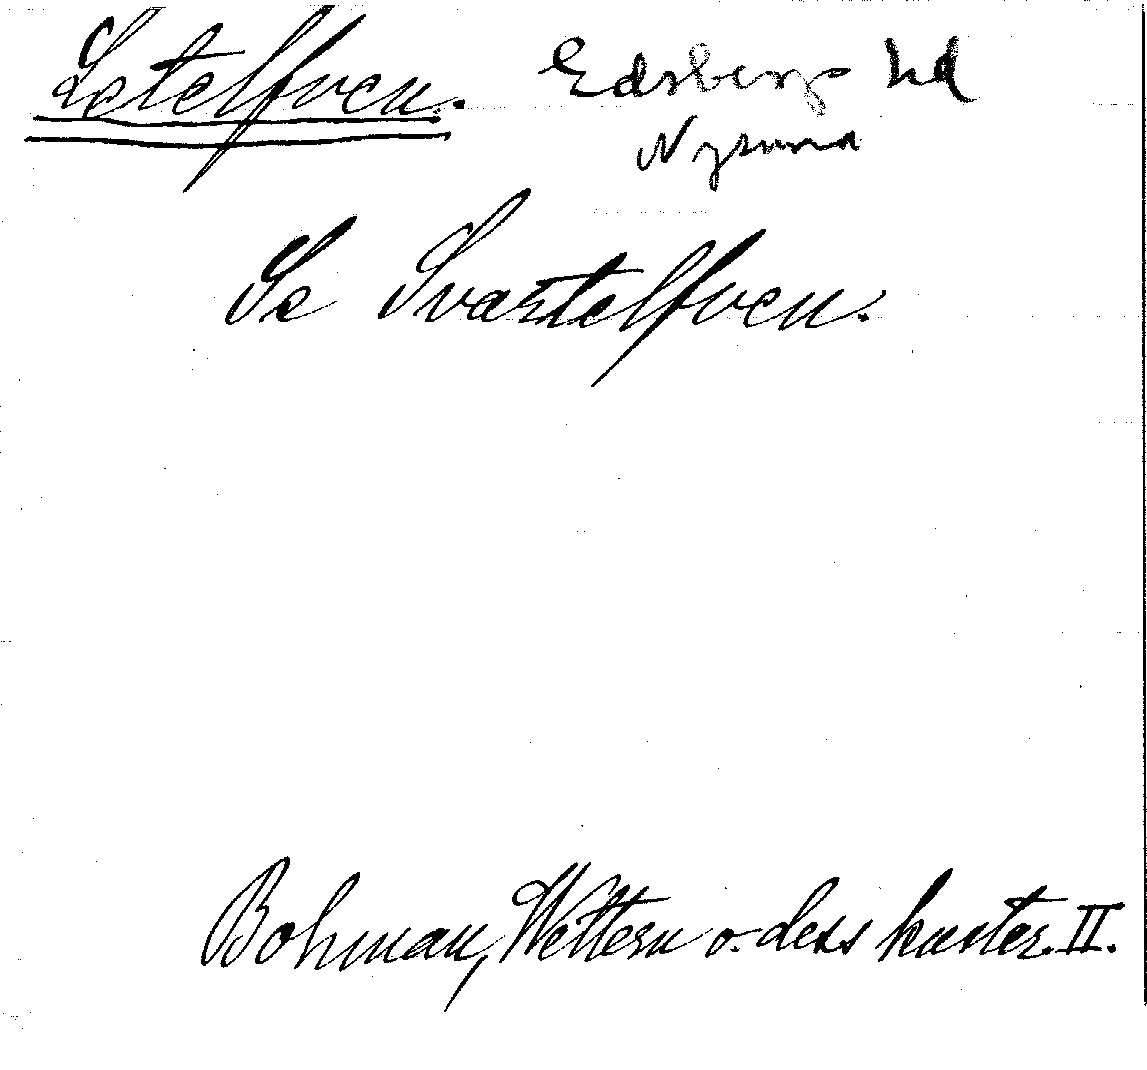 Letelfven. Edsbergs hd
Nysund
Se Svartelfven.
Bohman, Wettern o. dess kuster. II.